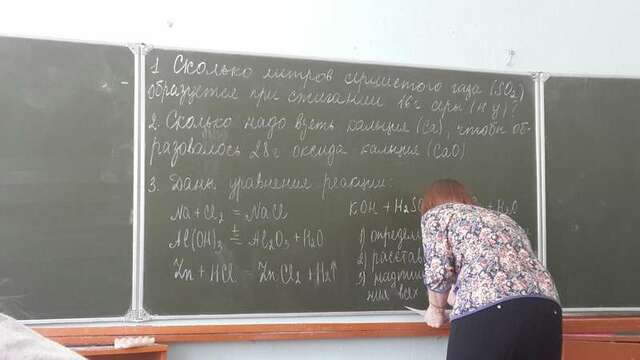 1. Сколько литров сернистого газа (SO₂)
образуется при сжигании 16 г серы (н.у)?
2. Сколько надо взять кальция (Ca), чтобы об-
разовалось 28 г оксида кальция (CaO)
3. Даны уравнения реакции:
Na + Cl₂ = NaCl
KOH + H₂S
Al(OH)₃ t= Al₂O₃ + H₂O
1) определ
2) расстав
Zn + HCl = ZnCl₂ + H₂↑
3)
ния всех